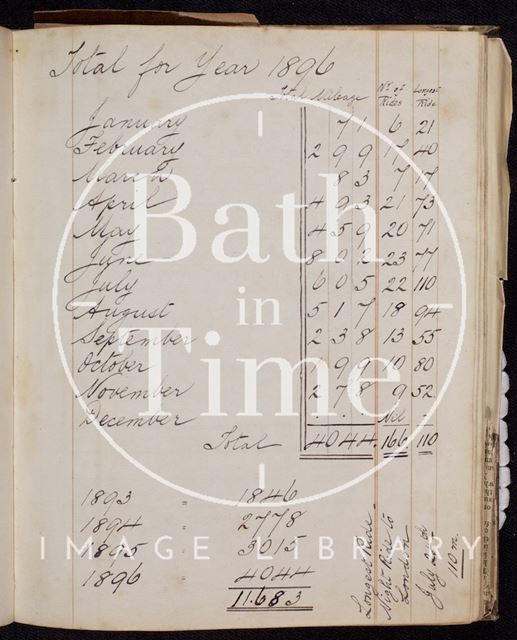 Total for Year 1896
Total Mileage No. of Rides Longest Ride
January 71 6 21
February 299 17 40
March 83 7 17
April 493 21 73
May 459 20 71
June 802 23 77
July 605 22 110
August 517 18 94
September 238 13 55
October 199 10 80
November 278 9 52
December - Nil -
Total 4044 166 110
1893 " 1846
1894 " 2778
1895 " 3015
1896 " 4044
11.683
Longest Ride.
Night Ride to
London
July
110 m.
Bath
in
Time
IMAGE LIBRARY